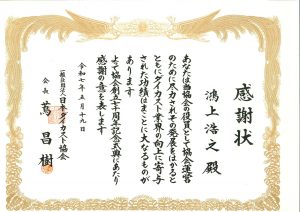 感謝状
鴻上浩之殿
あなたは当協会の役員として協会運営
のために尽力されその発展をはかると
ともにダイカスト業界の向上に寄与
された功績はまことに大なるものが
あります
よって協会創立七十周年記念式典にあたり
感謝の意を表します
令和七年五月十九日
一般社団法人日本ダイカスト協会
会長 蔦昌樹